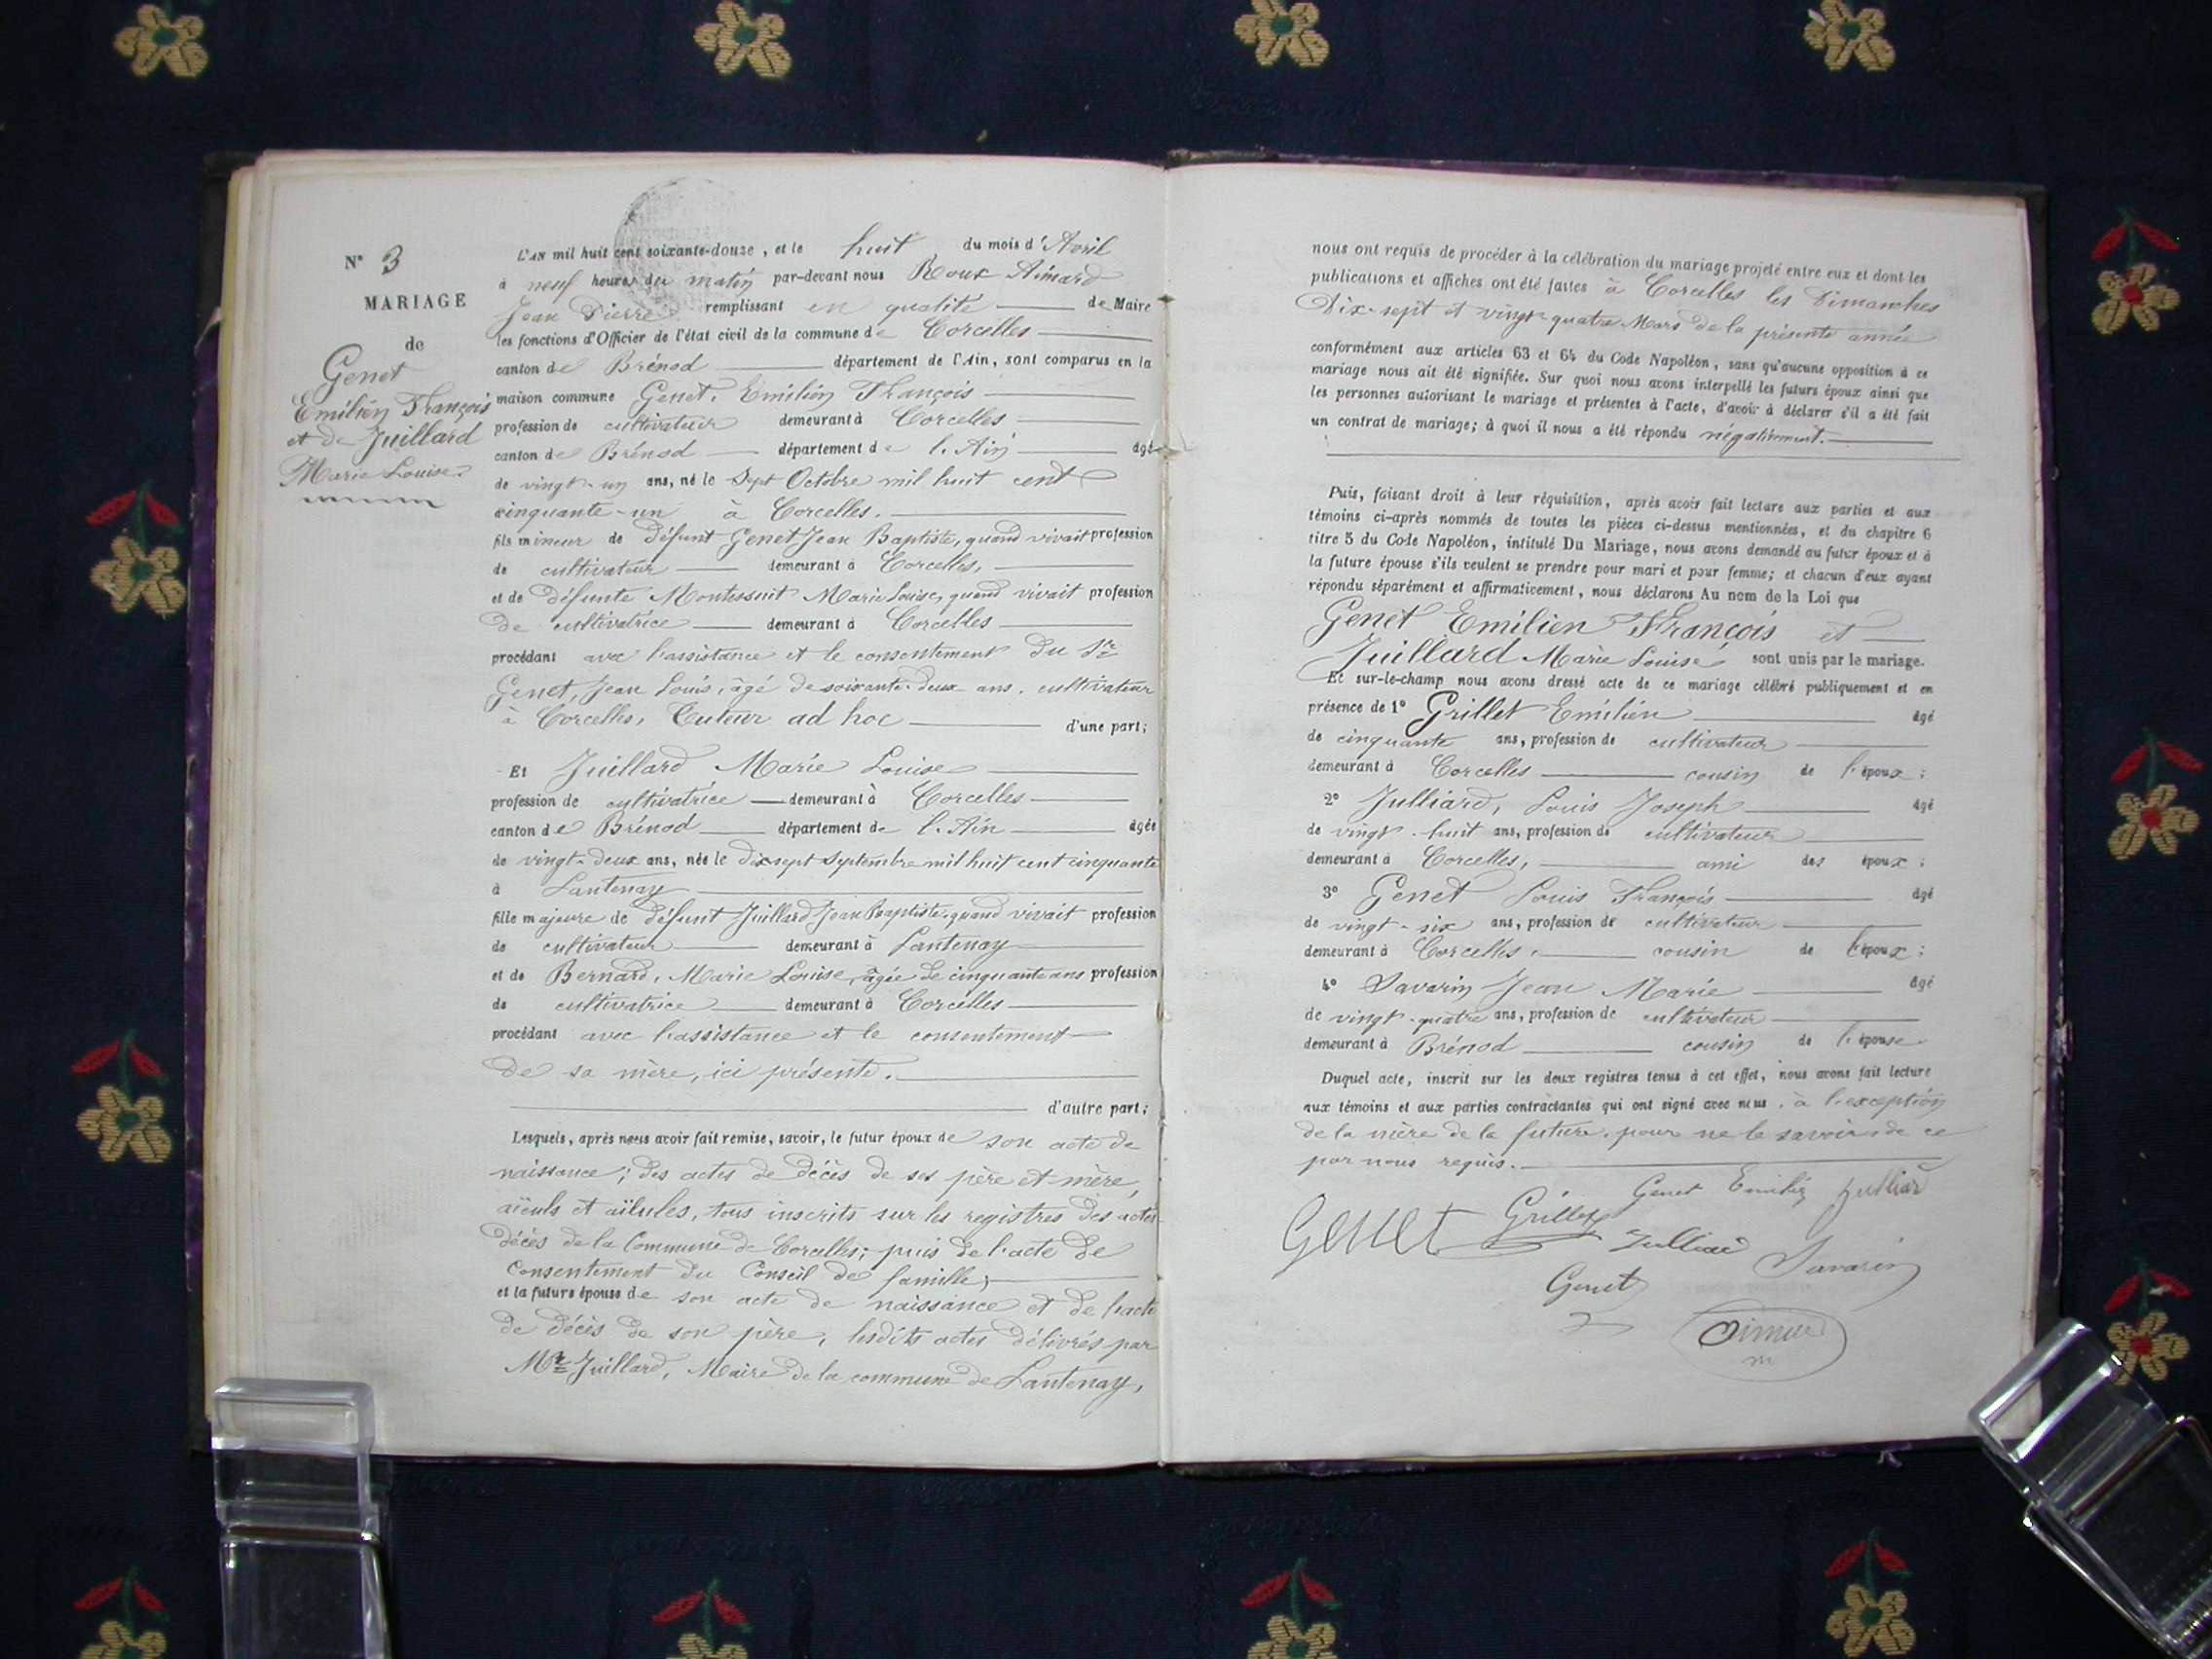 N° 3
MARIAGE
de
Genet
Emilien François
et de Juillard
Marie Louise
L'AN mil huit cent soixante-douze, et le huit du mois d'Avril
à neuf heures du matin par-devant nous Roux Aimard
Jean Pierre remplissant en qualité de Maire
les fonctions d'Officier de l'état civil de la commune de Corcelles
canton de Brénod département de l'Ain, sont comparus en la
maison commune Genet, Emilien François
profession de cultivateur demeurant à Corcelles
canton de Brénod département de l'Ain âgé
de vingt-un ans, né le Sept Octobre mil huit cent
cinquante-un à Corcelles.
fils mineur de défunt Genet Jean Baptiste, quand vivait profession
de cultivateur demeurant à Corcelles,
et de défunte Montessuit Marie Louise, quand vivait profession
de cultivatrice demeurant à Corcelles
procédant avec l'assistance et le consentement du Sr
Genet, Jean Louis, âgé de soixante-deux ans, cultivateur
à Corcelles, Tuteur ad hoc d'une part;
Et Juillard Marie Louise
profession de cultivatrice demeurant à Corcelles
canton de Brénod département de l'Ain âgée
de vingt-deux ans, née le dix sept Septembre mil huit cent cinquante
à Lantenay
fille majeure de défunt Juillard Jean Baptiste, quand vivait profession
de cultivateur demeurant à Lantenay
et de Bernard, Marie Louise, âgée de cinquante ans profession
de cultivatrice demeurant à Corcelles
procédant avec l'assistance et le consentement
de sa mère, ici présente.
d'autre part;
Lesquels, après nous avoir fait remise, savoir, le futur époux de son acte de
naissance; des actes de décès de ses père et mère,
aïeuls et aïlules, tous inscrits sur les registres des actes
décès de la Commune de Corcelles; puis de l'acte de
Consentement du Conseil de famille;
et la future épouse de son acte de naissance et de l'acte
de décès de son père, lesdits actes délivrés par
Mr Juillard, Maire de la commune de Lantenay,
nous ont requis de procéder à la célébration du mariage projeté entre eux et dont les
publications et affiches ont été faites à Corcelles les Dimanches
Dix-sept et vingt-quatre Mars de la présente année
conformément aux articles 63 et 64 du Code Napoléon, sans qu'aucune opposition à ce
mariage nous ait été signifiée. Sur quoi nous avons interpellé les futurs époux ainsi que
les personnes autorisant le mariage et présentes à l'acte, d'avoir à déclarer s'il a été fait
un contrat de mariage; à quoi il nous a été répondu négativement.
Puis, faisant droit à leur réquisition, après avoir fait lecture aux parties et aux
témoins ci-après nommés de toutes les pièces ci-dessus mentionnées, et du chapitre 6
titre 5 du Code Napoléon, intitulé Du Mariage, nous avons demandé au futur époux et à
la future épouse s'ils veulent se prendre pour mari et pour femme; et chacun d'eux ayant
répondu séparément et affirmativement, nous déclarons Au nom de la Loi que
Genet Emilien François et
Juillard Marie Louise sont unis par le mariage.
Et sur-le-champ nous avons dressé acte de ce mariage célébré publiquement et en
présence de 1° Grillet Emilien âgé
de cinquante ans, profession de cultivateur
demeurant à Corcelles cousin de l'époux;
2° Julliard, Louis Joseph âgé
de vingt-huit ans, profession de cultivateur
demeurant à Corcelles, ami des époux;
3° Genet Louis François âgé
de vingt-six ans, profession de cultivateur
demeurant à Corcelles, cousin de l'époux;
4° Savarin Jean Marie âgé
de vingt-quatre ans, profession de cultivateur
demeurant à Brénod cousin de l'épouse
Duquel acte, inscrit sur les deux registres tenus à cet effet, nous avons fait lecture
aux témoins et aux parties contractantes qui ont signé avec nous, à l'exception
de la mère de la future, pour ne le savoir, de ce
par nous requis.
Genet Emilien Julliard
Genet Grillet
Julliard Savarin
Genet